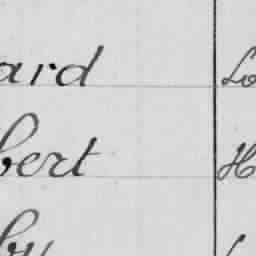 ard Lo
bert H
by